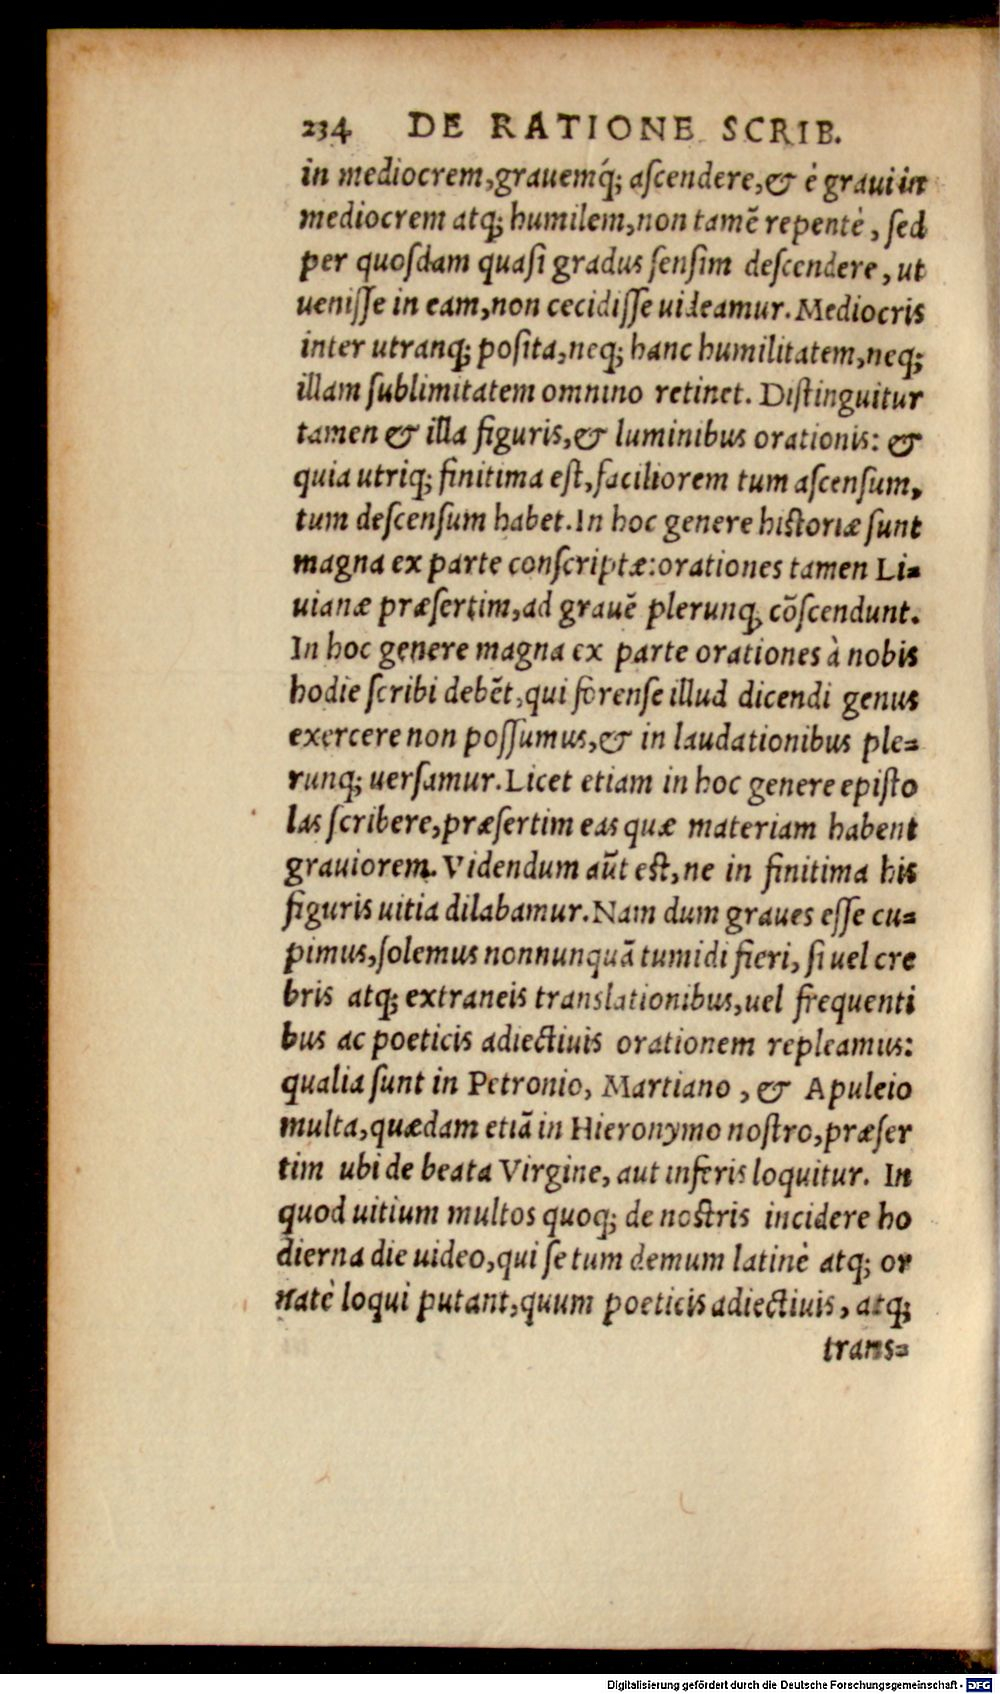 234 DE RATIONE SCRIB.
in mediocrem,grauemq́; ascendere,& è graui in
mediocrem atq; humilem,non tamē repentè, sed
per quosdam quasi gradus sensim descendere, ut
uenisse in eam,non cecidisse uideamur. Mediocris
inter utranq; posita,neq; hanc humilitatem,neq;
illam sublimitatem omnino retinet. Distinguitur
tamen & illa figuris,& luminibus orationis: &
quia utriq; finitima est,faciliorem tum ascensum,
tum descensum habet. In hoc genere historiæ sunt
magna ex parte conscriptæ: orationes tamen Li=
uianæ præsertim,ad grauē plerunq; cōscendunt.
In hoc genere magna ex parte orationes à nobis
hodie scribi debēt,qui forense illud dicendi genus
exercere non possumus,& in laudationibus ple=
runq; uersamur. Licet etiam in hoc genere episto
las scribere,præsertim eas quæ materiam habent
grauiorem. Videndum aūt est,ne in finitima his
figuris uitia dilabamur. Nam dum graues esse cu=
pimus,solemus nonnunquā tumidi fieri, si uel cre
bris atq; extraneis translationibus,uel frequenti
bus ac poeticis adiectiuis orationem repleamus:
qualia sunt in Petronio, Martiano, & Apuleio
multa,quædam etiā in Hieronymo nostro,præser
tim ubi de beata Virgine, aut inferis loquitur. In
quod uitium multos quoq; de nostris incidere ho
dierna die uideo,qui se tum demum latinè atq; or
natè loqui putant,quum poeticis adiectiuis, atq;
trans=
Digitalisierung gefördert durch die Deutsche Forschungsgemeinschaft - DFG